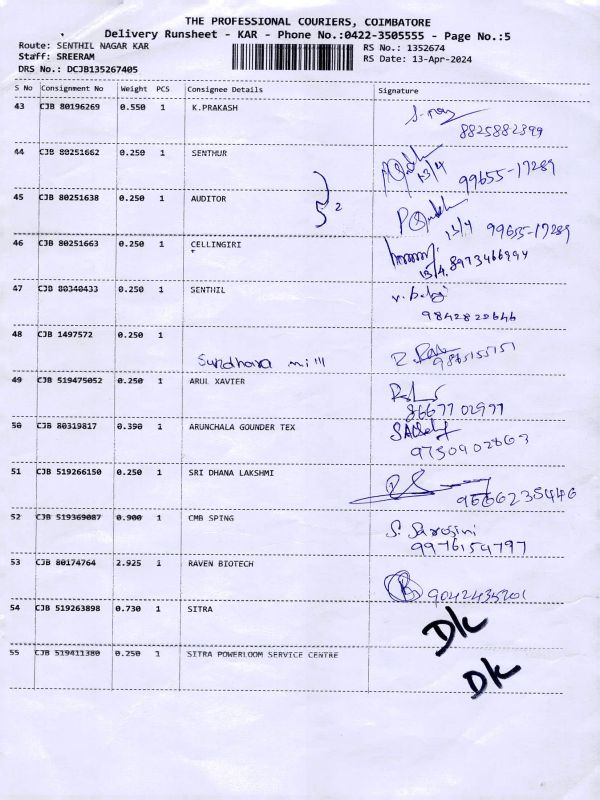 THE PROFESSIONAL COURIERS, COIMBATORE
Delivery Runsheet - KAR - Phone No.:0422-3505555 - Page No.:5
Route: SENTHIL NAGAR KAR
RS No.: 1352674
Staff: SREERAM
RS Date: 13-Apr-2024
DRS No.: DCJB135267405
S No Consignment No Weight PCS Consignee Details Signature
43 CJB 80196269 0.550 1 K.PRAKASH
8825882399
44 CJB 80251662 0.250 1 SENTHUR
13/4 99655-17289
45 CJB 80251638 0.250 1 AUDITOR
2
13/4 99655-17289
46 CJB 80251663 0.250 1 CELLINGIRI
+
13/4. 8973466994
47 CJB 80340433 0.250 1 SENTHIL
9842820646
48 CJB 1497572 0.250 1
Sundhara mill
9865155151
49 CJB 519475052 0.250 1 ARUL XAVIER
8667702977
50 CJB 80319817 0.390 1 ARUNCHALA GOUNDER TEX
9750902863
51 CJB 519266150 0.250 1 SRI DHANA LAKSHMI
9666235446
52 CJB 519369087 0.900 1 CMB SPING
S. Sarojini
9976154797
53 CJB 80174764 2.925 1 RAVEN BIOTECH
9042435201
54 CJB 519263898 0.730 1 SITRA
D/K
55 CJB 519411380 0.250 1 SITRA POWERLOOM SERVICE CENTRE
D/K